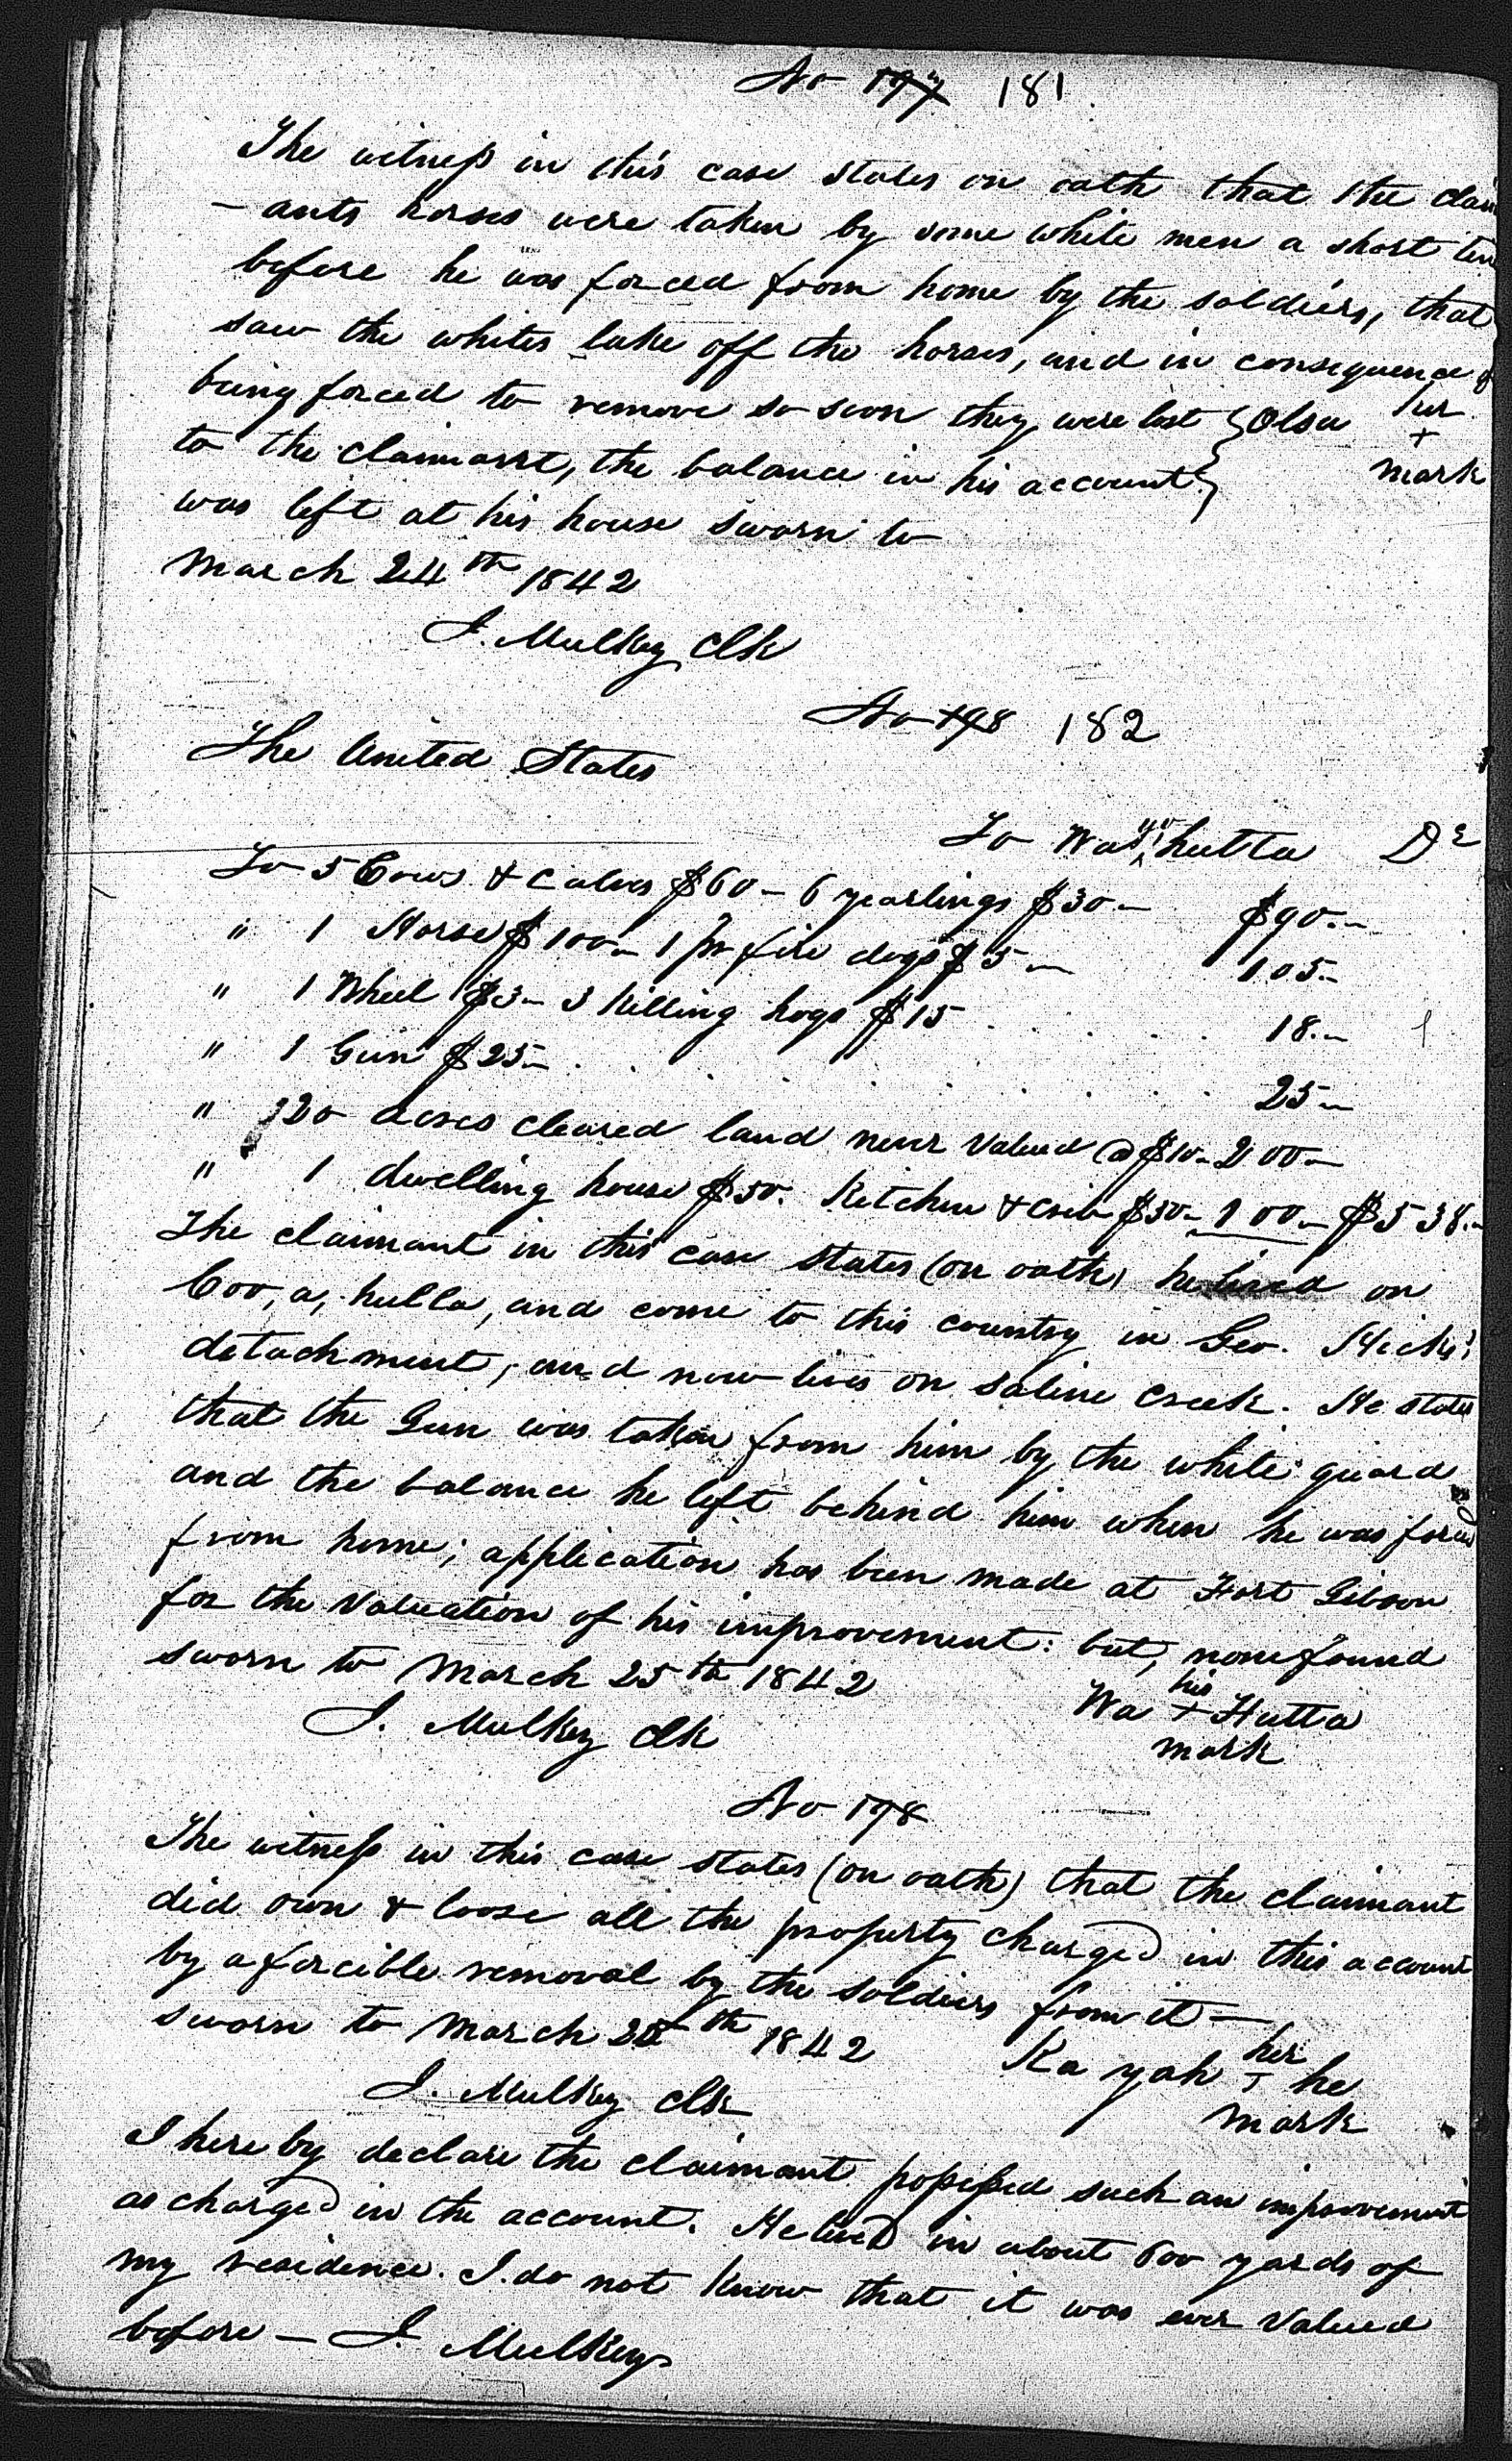 No 197 181
The witness in this case states on oath that the claim
- ants horses were taken by some white men a short time
before he was forced from home by the soldiers, that
saw the whites take off the horses, and in consequence of
being forced to remove so soon they were lost Olsu her
to the claimant, the balance in his account. + mark
was left at his house sworn to
March 24th 1842
J. Mulkey Clk
No 198 182
The United States
To Wa hutta Dr
To 5 Cows & Calves $60 - 6 yearlings $30 - $90.-
" 1 Horse $100 - 1 pr fire dogs $5 - 105-
" 1 Wheel $3 - 3 killing hogs $15 . . . 18.-
" 1 Gun $25 - . . . 25-
" 20 acres cleared land never valued @ $10 - 200-
" 1 dwelling house $50. Kitchen & Crib $50 - 100 - $538.-
The claimant in this case states (on oath) he lived on
Coo, a, hulla, and come to this country in Geo. Hicks'
detachment, and now lives on saline creek. He states
that the Gun was taken from him by the white guard
and the balance he left behind him when he was forced
from home; application has been made at Fort Gibson
for the valuation of his improvement: but, none found
sworn to March 25th 1842 his
J. Mulkey Clk Wa + Hutta
mark
No 198
The witness in this case states (on oath) that the claimant
did own & loose all the property charged in this account
by a forcible removal by the soldiers from it -
sworn to March 25th 1842 Ka yah her + he
J. Mulkey Clk mark
I hereby declare the claimant possessed such an improvement
as charged in the account. He lived in about 600 yards of
my residence. I do not know that it was ever valued
before - J. Mulkey